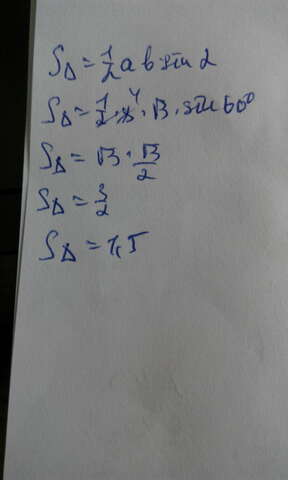 S△ = 1/2 a b sin α
S△ = 1/2 · 4 · √3 · sin 60°
S△ = √3 · √3/2
S△ = 3/2
S△ = 1,5